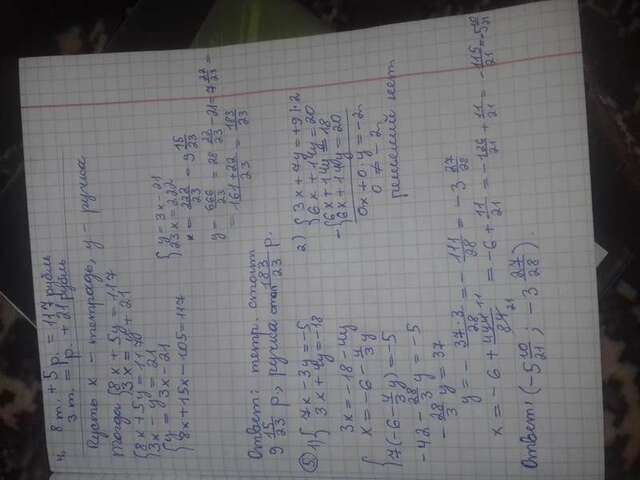 4. 8 т. + 5 р. = 117 рубль
3 т. = р. + 21 рубль
Пусть x - тетрадь, y - ручка
Тогда {8x + 5y = 117
{3x = y + 21
{8x + 5y = 117
{3x - y = 21
{y = 3x - 21
{8x + 15x - 105 = 117
{y = 3x - 21
{23x = 222
x = 222/23 = 9 15/23
y = 666/23 - 21 = 7 22/23 =
= (161+22)/23 = 183/23
Ответ: тетр. стоит
9 15/23 р, ручка 183/23 р.
⑤ 1) {7x - 3y = -5
{3x + 4y = -18
3x = -18 - 4y
{x = -6 - 4/3 y
{7(-6 - 4/3 y) = -5
-42 - 28/3 y = -5
-28/3 y = 37
y = - 37·3/28 = - 111/28 = -3 27/28
x = -6 + = -6 + 11/21 = -125/21 + 11/21 = -115/21 = -5 10/21
Ответ: (-5 10/21 ; -3 27/28).
2) {3x + 7y = +9 |·2
{6x + 14y = 20
-{6x + 14y = 18
{6x + 14y = 20
0x + 0y = -2
0 ≠ -2
решений нет